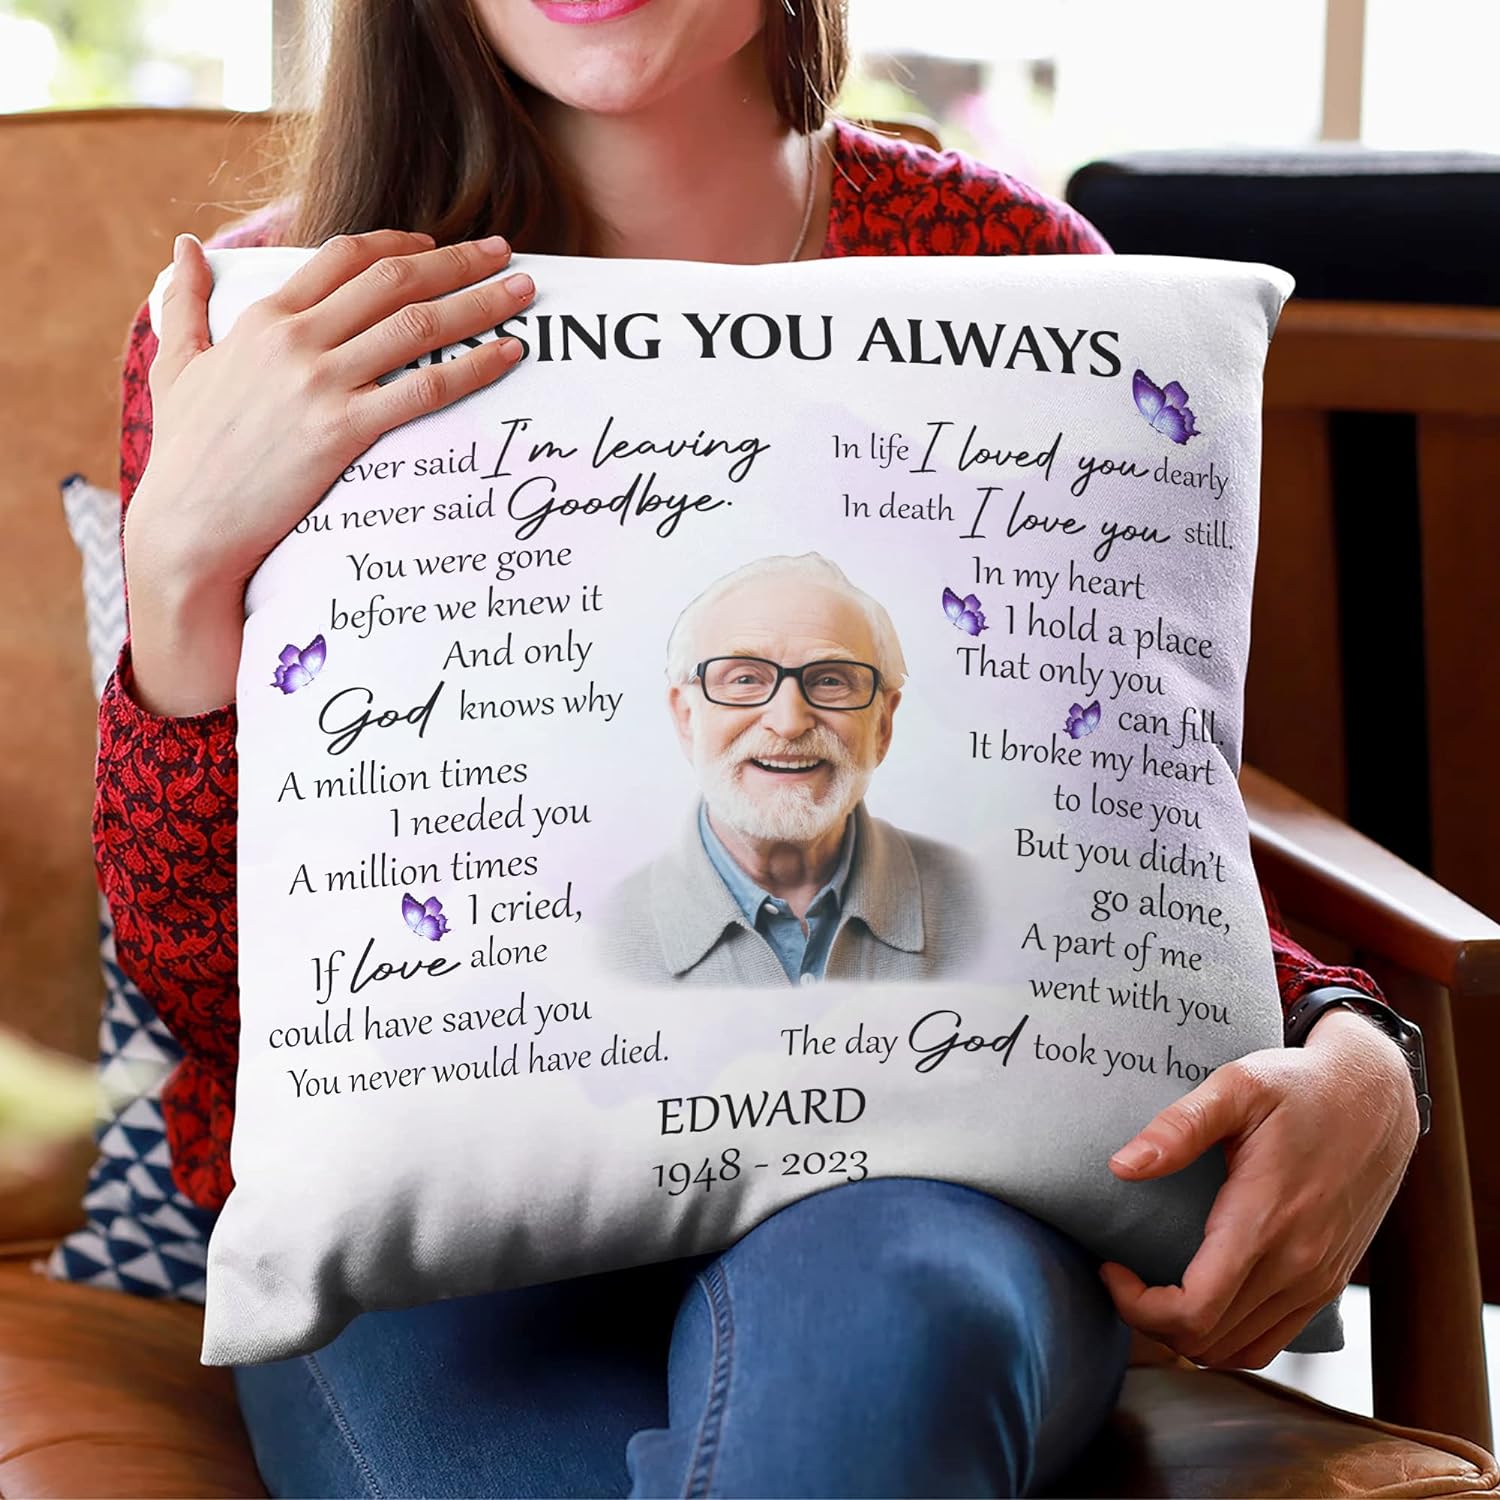 SSING YOU ALWAYS
ever said I'm leaving
ou never said Goodbye.
You were gone
before we knew it
And only
God knows why
A million times
I needed you
A million times
I cried,
If love alone
could have saved you
You never would have died.
In life I loved you dearly
In death I love you still.
In my heart
I hold a place
That only you
can fill.
It broke my heart
to lose you
But you didn't
go alone,
A part of me
went with you
The day God took you ho
EDWARD
1948 - 2023